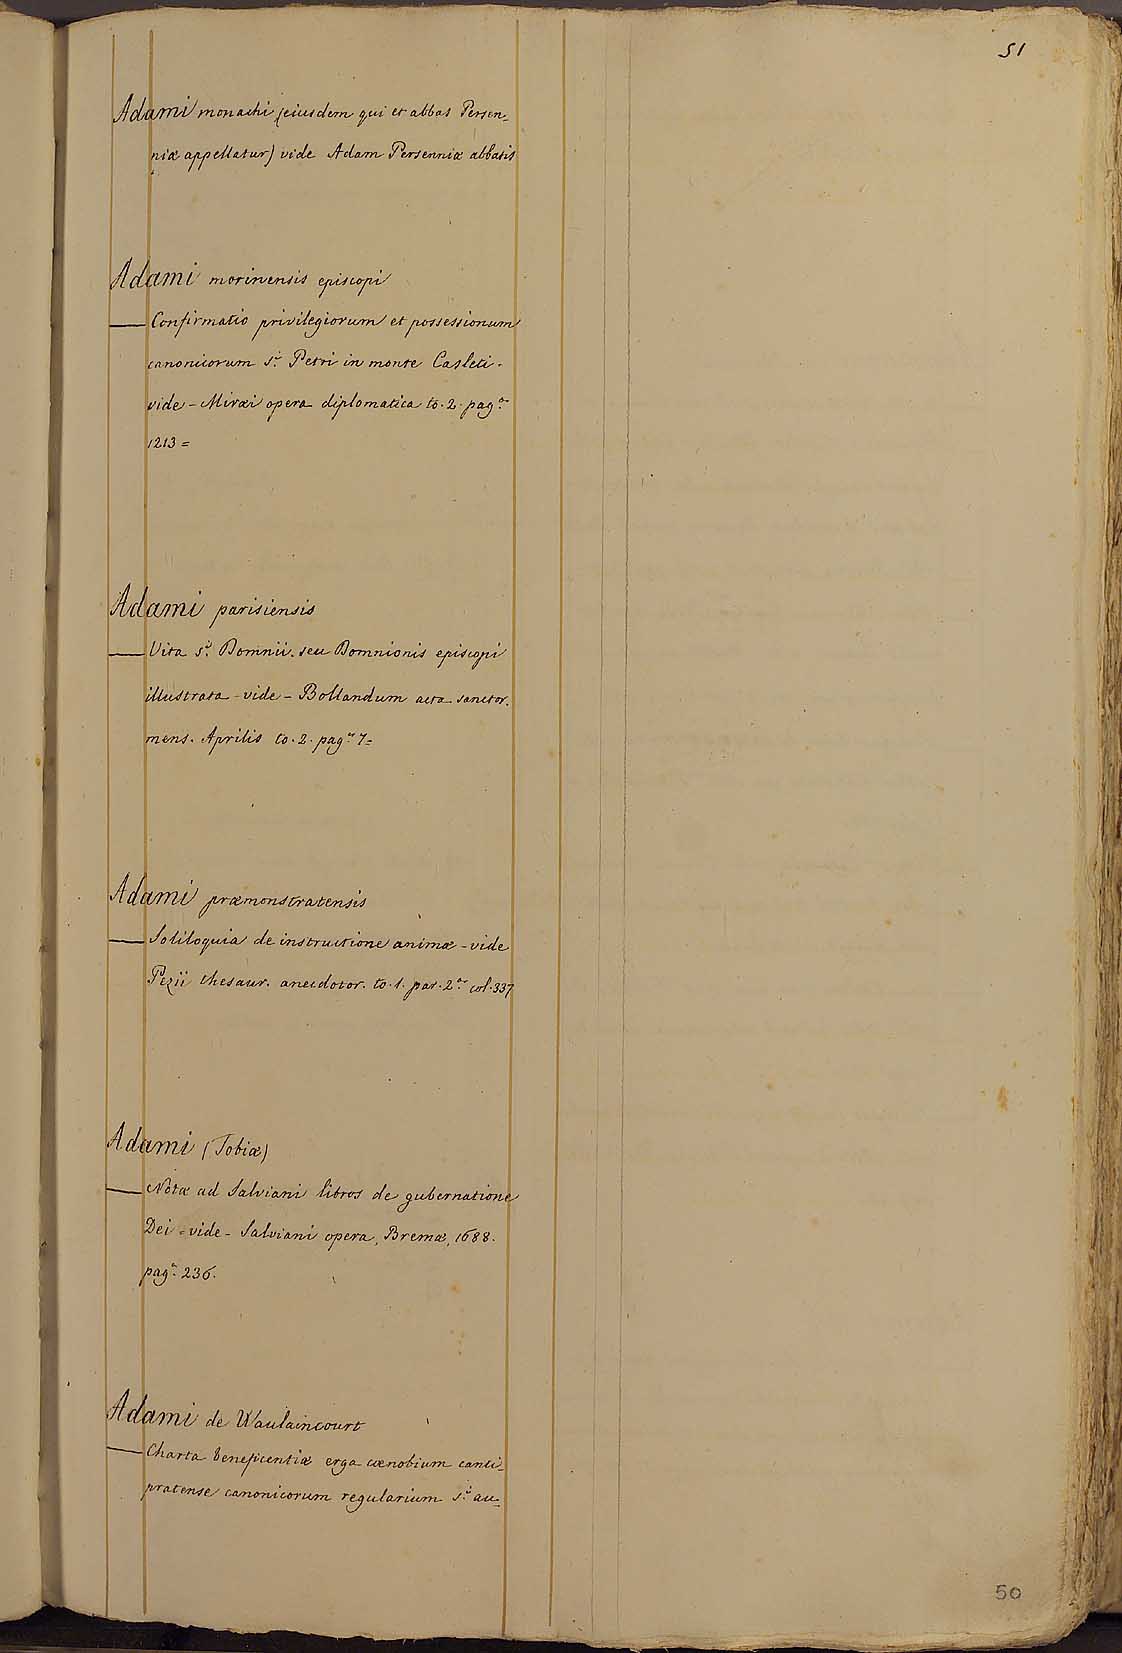 51
Adami monachi (eiusdem qui et abbas Persen-
niæ appellatur) vide Adam Persenniæ abbatis
Adami morinensis episcopi
— Confirmatio privilegiorum et possessionum
canonicorum s.i Petri in monte Casleti -
vide - Miræi opera diplomatica to. 2. pag.a
1213 =
Adami parisiensis
— Vita s.i Domnii, seu Domnionis episcopi
illustrata - vide - Bollandum acta sanctor.
mens. Aprilis to. 2. pag.a 7 =
Adami præmonstratensis
— Soliloquia de instructione animæ - vide
Pezii thesaur. anecdotor. to. 1. par. 2.a col. 337
Adami (Tobiæ)
— Notæ ad Salviani libros de gubernatione
Dei = vide - Salviani opera, Bremæ, 1688.
pag.a 236.
Adami de Waulaincourt
— Charta beneficentiæ erga cœnobium canti-
pratense canonicorum regularium s.i au-
50